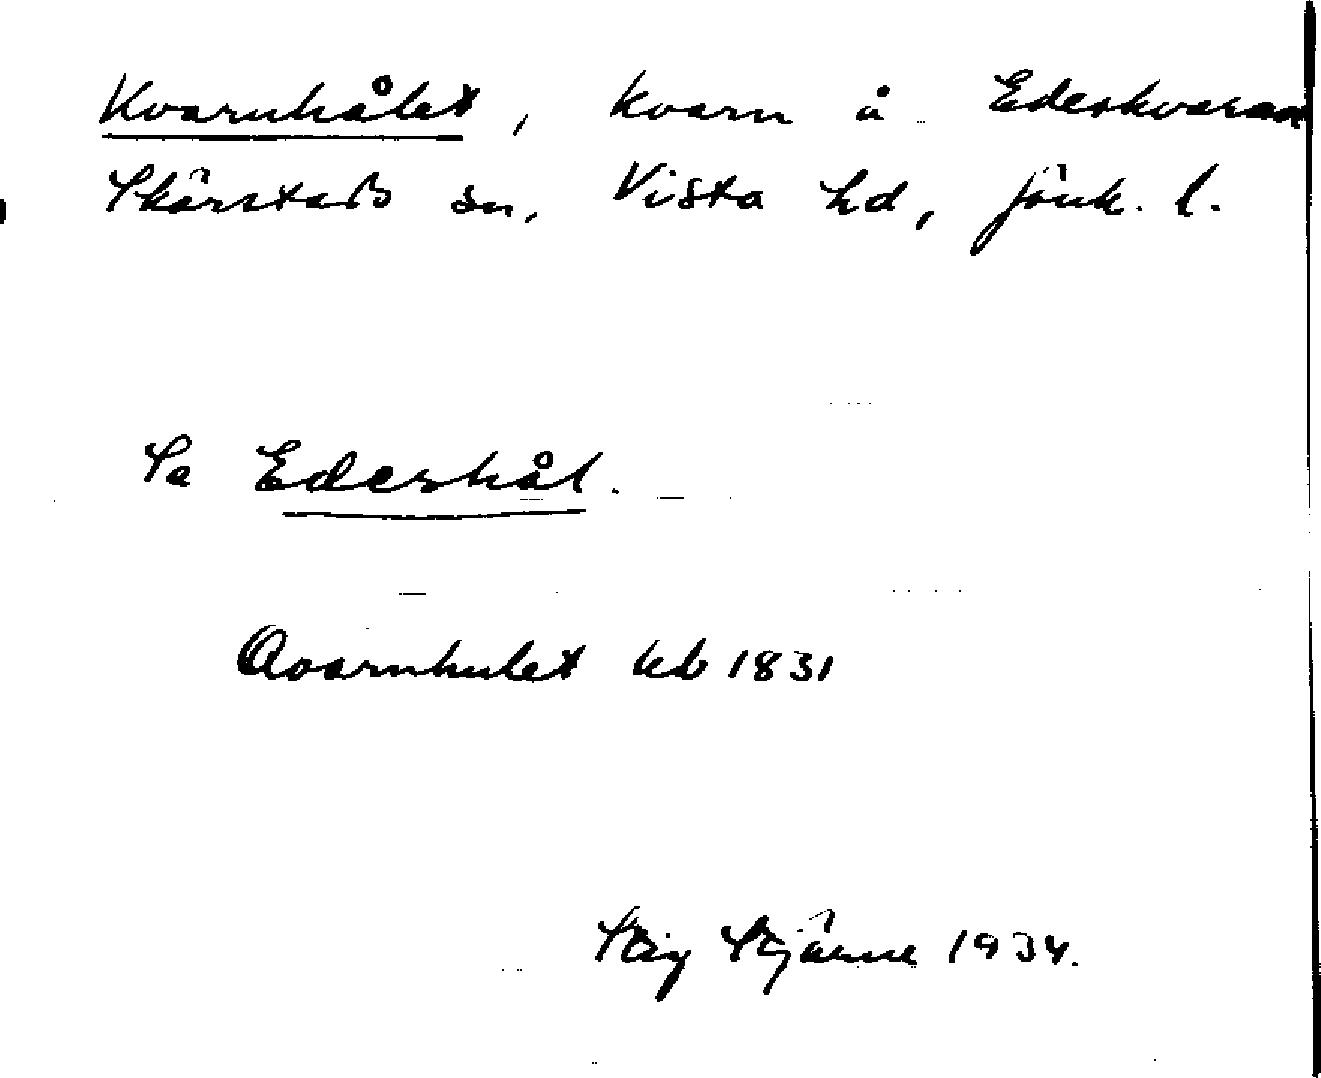 Kvarnhålet, kvarn å Edeskvarna
Skärstads sn, Vista hd, Jönk. l.
Se Edeshål.
Qvarnhulet kb 1831
Stig Stjärne 1934.